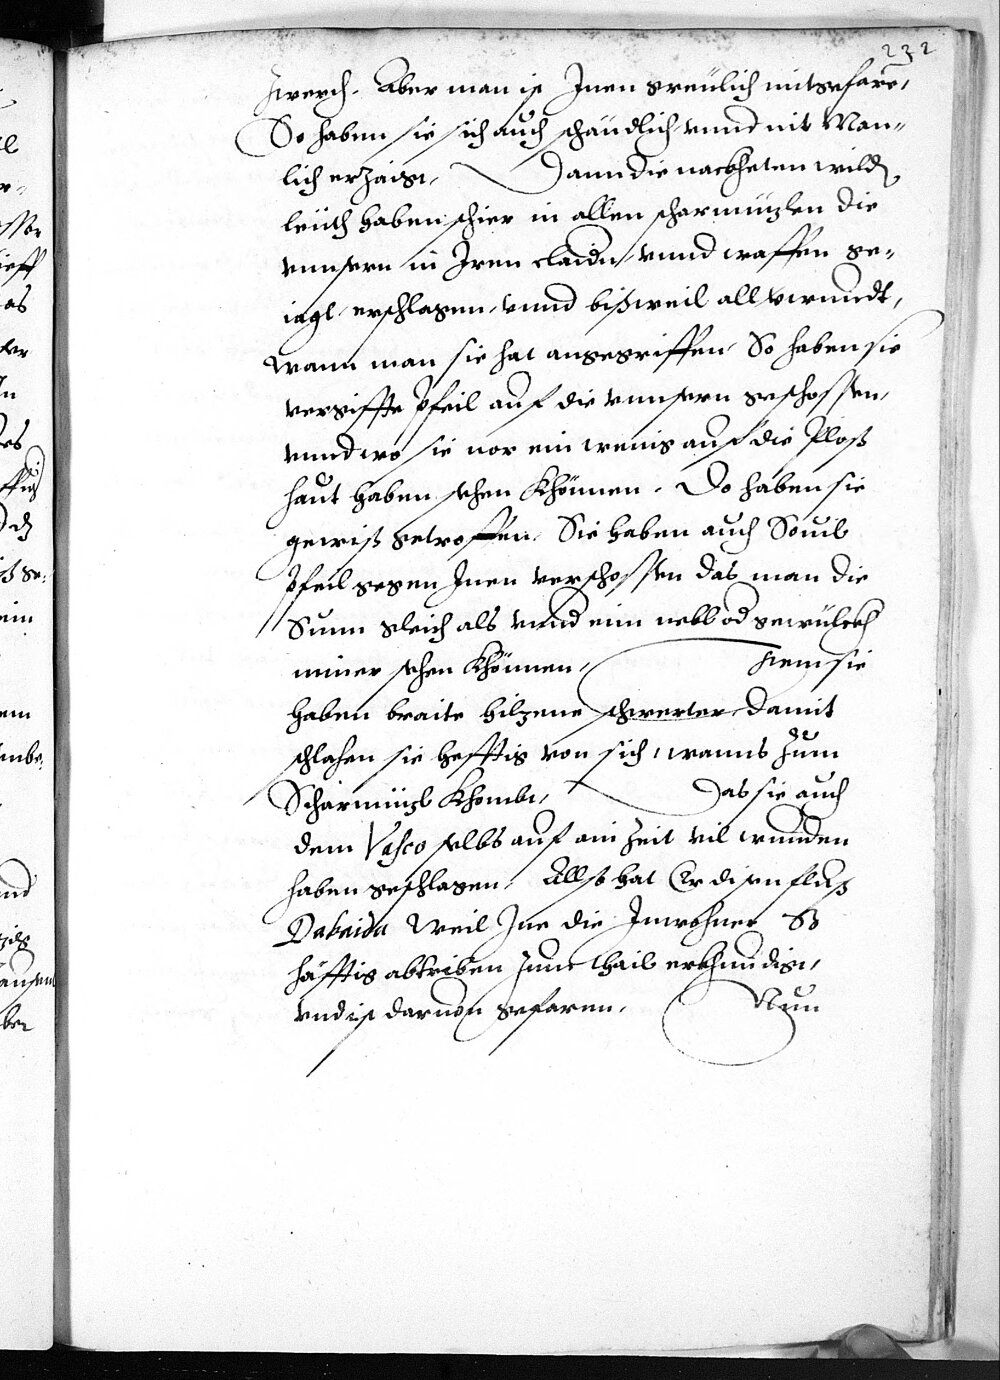 232
zwerch. Aber man ist Inen greülich mitgefarn,
So haben sie sich auch schändlich vnnd nit Man-
lich erzaigt, Dann die nackheten wild
leüth haben schier in allen scharmützlen die
vnnsern in Iren claidn vnnd waffen ge-
iagt erschlagen, vnnd bißweil all verwundt,
Wann man sie hat angegriffen So haben sie
vergiffte Pfeil auf die vnnsern geschossen,
vnnd wo sie nor ein wenig auf die Ploß
haut haben sehen Khönnen. Do haben sie
gewiß getroffen. Sie haben auch Souil
Pfeil gegen Inen verschossen das man die
Sunn gleich als vnnd eim nebl od gewülckh
nimer sehen Khönnen, Item sie
haben braite hilzene schwerter damit
schlahen sie hefftig von sich, wanns Zum
Scharmützl Khombt, Das sie auch
dem Vasco selbs auf ain Zeit vil wunden
haben geschlagen. Allso hat Er disen fluß
Dabaida Weil Ine die Inwohner So
häfftig abtriben zum thail erkhundigt,
vnd ist daruon gefaren. Nun